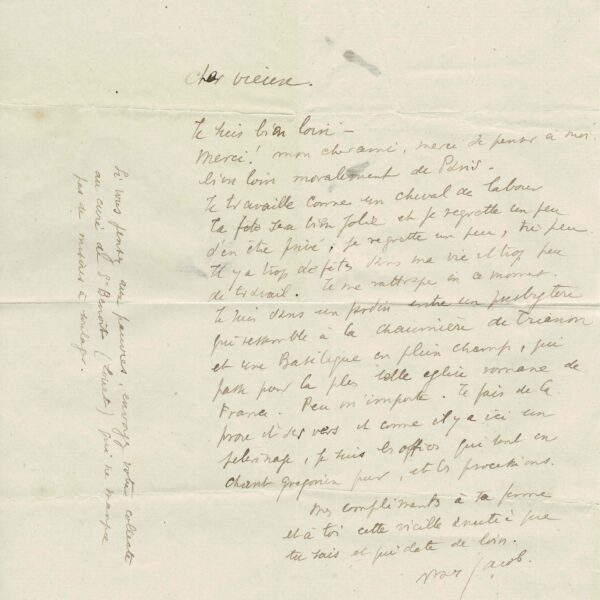 cher vieux.
Je suis bien loin –
Merci! mon cher ami, merci de penser à moi.
bien loin moralement de Paris.
Je travaille comme un cheval de labour
La fête sera bien jolie et je regrette un peu
d'en être privé, je regrette un peu, très peu.
Il y a trop de fêtes dans ma vie et trop peu
de travail. Je me rattrape en ce moment.
Je suis dans un jardin entre un presbytère
qui ressemble à la chaumière de Trianon
et une Basilique en plein champ, qui
passe pour la plus belle église romane de
France. Peu m'importe. Je fais de la
prose et des vers et comme il y a ici un
pélerinage, je suis les offices qui sont en
chant grégorien pur, et les processions.
Mes compliments à ta femme
et à toi cette vieille amitié que
tu sais et qui date de loin.
Max Jacob.
Si vous pensez aux pauvres, envoyez votre collecte
au curé de St Benoit (Loiret) qui ne manque
pas de misères à soulager.